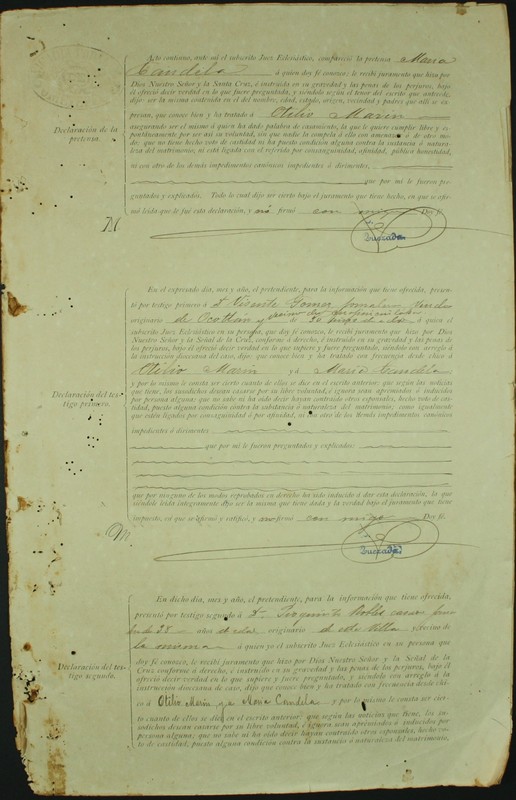 Acto contínuo, ante mí el suscrito Juez Eclesiástico, compareció la pretensa Maria
Candela á quien doy fé conozco; le recibí juramento que hizo por
Dios Nuestro Señor y la Santa Cruz, é instruida en su gravedad y las penas de los perjuros, bajo
él ofreció decir verdad en lo que fuere preguntada, y siéndolo segun el tenor del escrito que antecede,
dijo: ser la misma contenida en él del nombre, edad, estado, orígen, vecindad y padres que allí se ex-
presan, que conoce bien y ha tratado á Otilio Marin
asegurando ser el mismo á quien ha dado palabra de casamiento, la que le quiere cumplir libre y es-
pontáneamente por ser así su voluntad, sin que nadie la compela á ello con amenazas ó de otro mo-
do: que no tiene hecho voto de castidad ni ha puesto condicion alguna contra la sustancia ó natura-
leza del matrimonio, ni está ligada con el referido por consanguinidad, afinidad, pública honestidad,
ni con otro de los demás impedimentos canónicos impedientes ó dirimentes,
que por mí le fueron pre-
guntados y explicados. Todo lo cual dijo ser cierto bajo el juramento que tiene hecho, en que se afir-
mó leida que le fué esta declaración, y no firmó con migo Doy fé.
Declaración de la
pretensa.
M.
Buscada
En el expresado dia, mes y año, el pretendiente, para la información que tiene ofrecida, presen-
tó por testigo primero á D. Vicente Gomez
originario de Ocotlan y vecino de
á quien el
suscrito Juez Eclesiástico en su persona, que doy fé conozco, le recibí juramento que hizo por Dios
Nuestro Señor y la Señal de la Cruz, conforme á derecho, é instruido en su gravedad y las penas de
los perjuros, bajo él ofreció decir verdad en lo que supiere y fuere preguntado, siéndolo con arreglo á
la instrucción direccionera del caso, dijo: que conoce bien y ha tratado con frecuencia desde chico á
Otilio Marin y á Maria Candela
y por lo mismo le consta ser cierto cuanto de ellos se dice en el escrito anterior: que según las noticias
que tiene, los susodichos desean casarse por su libre voluntad, é ignora sean apremiados ó inducidos
por persona alguna: que no sabe ni ha oido decir hayan contraido otros esponsales, hecho voto de cas-
tidad, puesto alguna condición contra la substancia ó naturaleza del matrimonio; como igualmente
que estén ligados por consanguinidad ó por afinidad, ni con otro de los demás impedimentos canónicos
impedientes ó dirimentes
que por mí le fueron preguntados y explicados:
que por ninguno de los modos reprobados en derecho ha sido inducido á dar esta declaración, la que
siéndole leida íntegramente dijo ser la misma que tiene dada y la verdad bajo el juramento que tiene
impuesto, en que se afirmó y ratificó, y no firmó con migo Doy fé.
Declaración del tes-
tigo primero.
M.
Buscada
En dicho dia, mes y año, el pretendiente, para la información que tiene ofrecida,
presentó por testigo segundo á D. Robles casado
de 35 años de edad originario de esta Villa y vecino de
la misma á quien yo el suscrito Juez Eclesiástico en su persona que
doy fé conozco, le recibí juramento que hizo por Dios Nuestro Señor y la Señal de la
Cruz conforme á derecho, é instruido en su gravedad y las penas de los perjuros, bajo él
ofreció decir verdad en lo que supiere y fuere preguntado, y siéndolo con arreglo á la
instrucción direccionera de caso, dijo que conoce bien y ha tratado con frecuencia desde chi-
co á Otilio Marin y á Maria Candela y por lo mismo le consta ser cier-
to cuanto de ellos se dice en el escrito anterior: que según las noticias que tiene, los su-
sodichos desean casarse por su libre voluntad, é ignora sean apremiados ó inducidos por
persona alguna: que no sabe ni ha oido decir hayan contraido otros esponsales, hecho vo-
to de castidad, puesto alguna condición contra la sustancia ó naturaleza del matrimonio.
Declaración del tes-
tigo segundo.